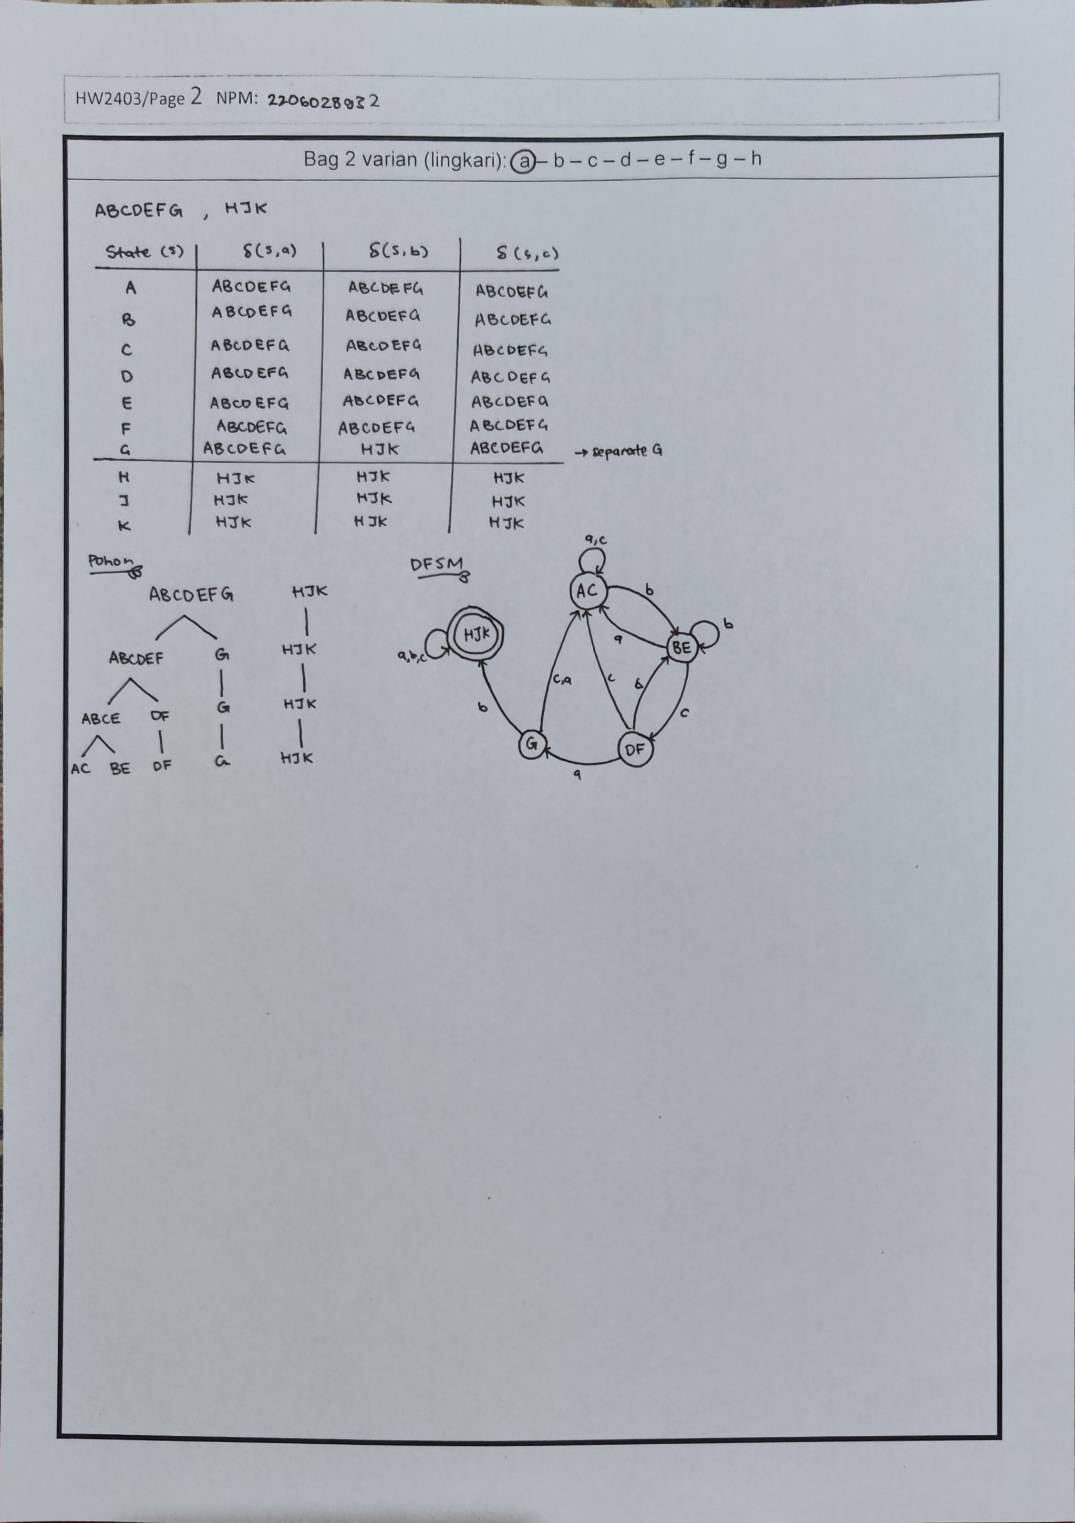 HW2403/Page 2 NPM: 2206028932
Bag 2 varian (lingkari): a – b – c – d – e – f – g – h
ABCDEFG , HJK
State (s) δ(s,a) δ(s,b) δ(s,c)
A ABCDEFG ABCDEFG ABCDEFG
B ABCDEFG ABCDEFG ABCDEFG
C ABCDEFG ABCDEFG ABCDEFG
D ABCDEFG ABCDEFG ABCDEFG
E ABCDEFG ABCDEFG ABCDEFG
F ABCDEFG ABCDEFG ABCDEFG
G ABCDEFG HJK ABCDEFG → separate G
H HJK HJK HJK
J HJK HJK HJK
K HJK HJK HJK
Pohon
ABCDEFG HJK
ABCDEF G HJK
ABCE DF G HJK
AC BE DF G HJK
DFSM
a,c
AC b
HJK b
a BE
a,b,c
c,a c b
b c
G DF
a